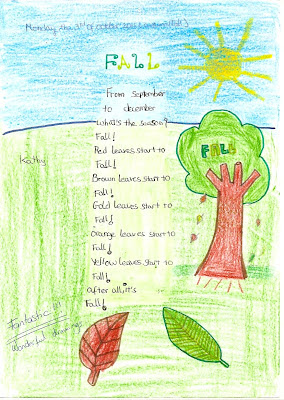 Monday, the 3rd of october, 2011
FALL
From september
to december
What's the season?
Fall!
Red leaves start to
Fall!
Brown leaves start to
Fall!
Gold leaves start to
Fall!
Orange leaves start to
Fall!
Yellow leaves start to
Fall!
after all, it's
Fall!
Kathy
FALL
Fantastic!!!
Wonderful drawings